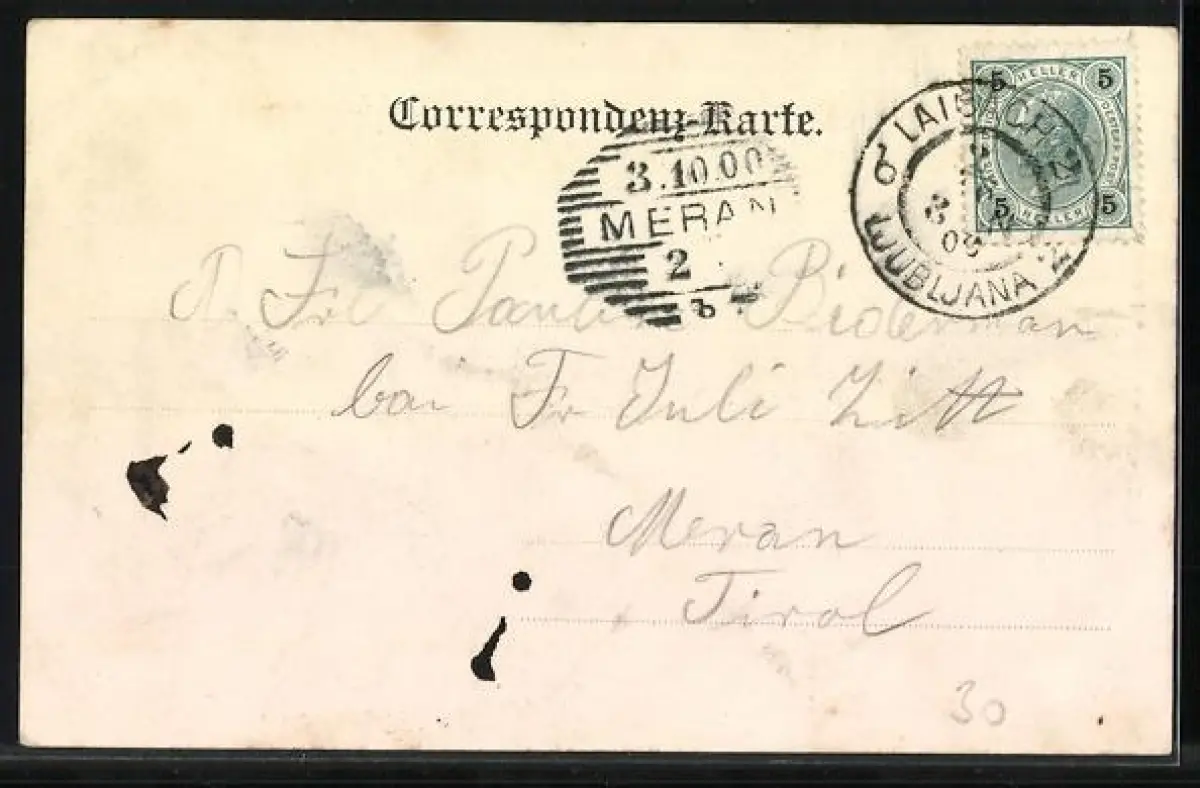 Correspondenz-Karte.
5 HELLER 5
5 HELLER 5
LAIBACH
LJUBLJANA
00
3.10.00
MERAN
2
b
Frl Biderman
bai Fr Juli Zitt
Meran
Tirol
30